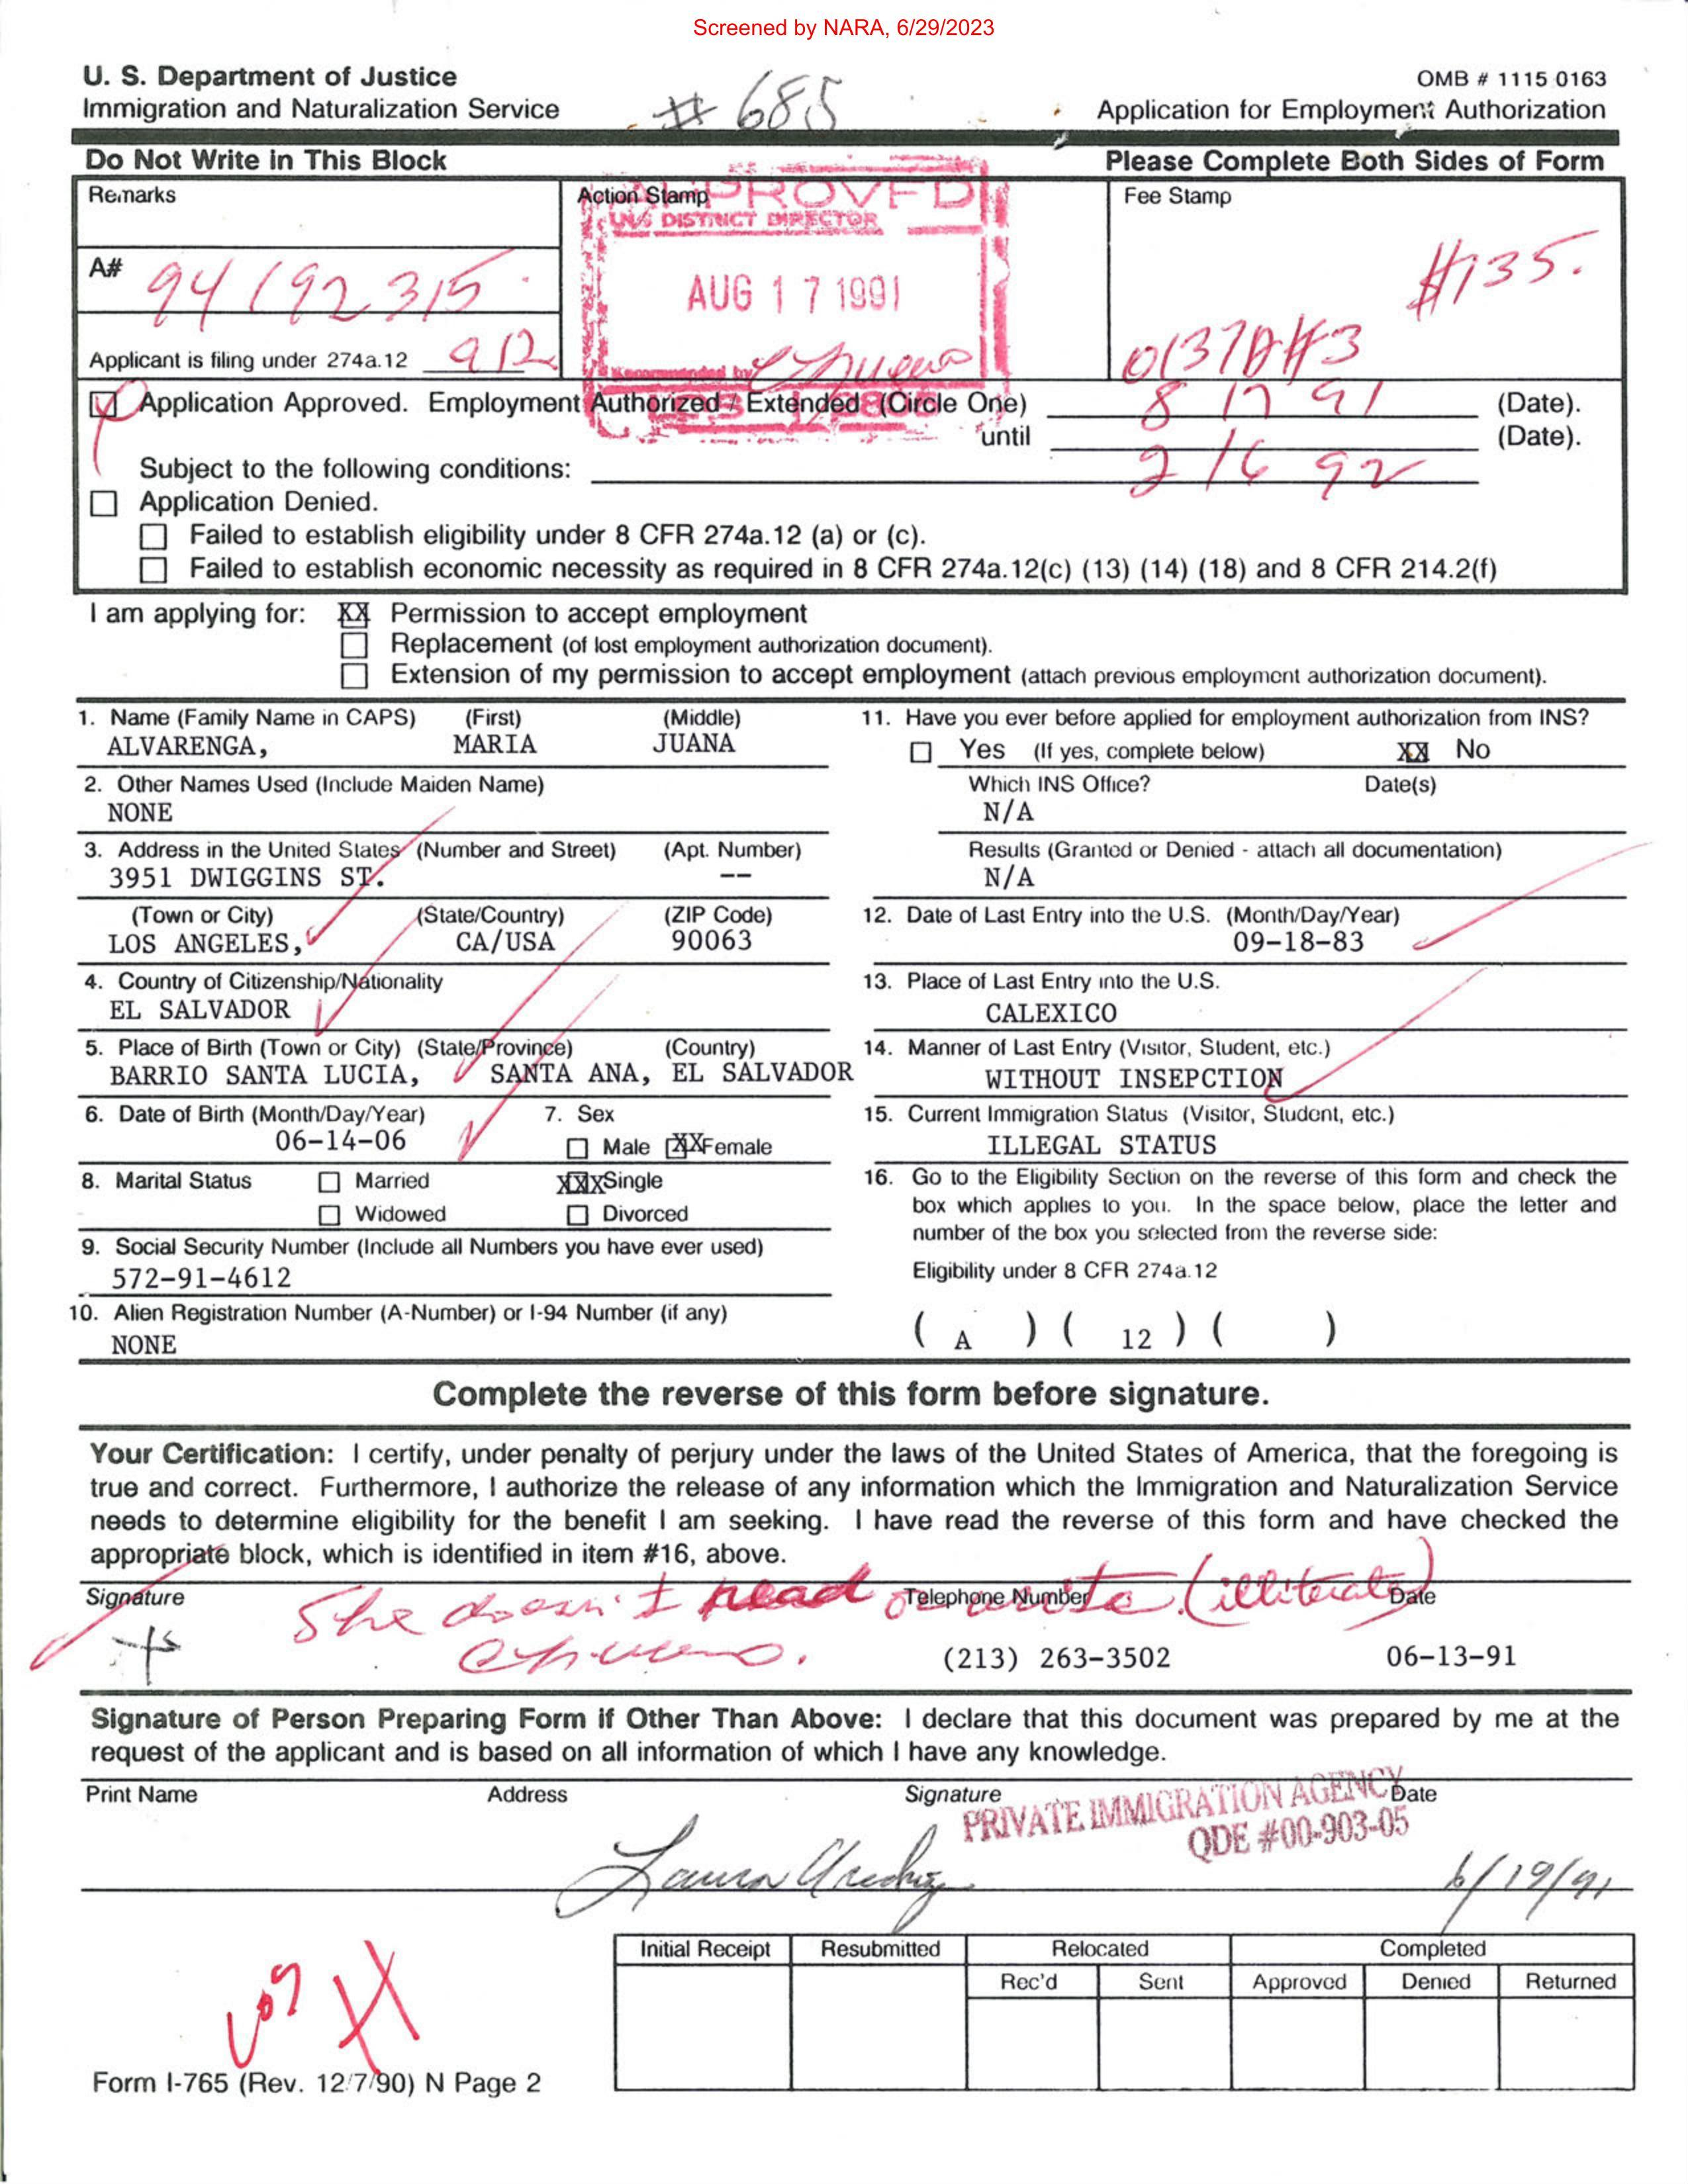 Screened by NARA, 6/29/2023
U. S. Department of Justice
OMB # 1115 0163
Immigration and Naturalization Service
# 685
Application for Employment Authorization
Do Not Write in This Block
Please Complete Both Sides of Form
Remarks
Action Stamp
Fee Stamp
APPROVED
INS DISTRICT DIRECTOR
AUG 17 1991
Recommended by
A# 94 192 315
$135.
Applicant is filing under 274a.12 a12
Application Approved. Employment Authorized / Extended (Circle One) 8 17 91 (Date).
until 2 16 92 (Date).
Subject to the following conditions:
Application Denied.
Failed to establish eligibility under 8 CFR 274a.12 (a) or (c).
Failed to establish economic necessity as required in 8 CFR 274a.12(c) (13) (14) (18) and 8 CFR 214.2(f)
I am applying for: XX Permission to accept employment
Replacement (of lost employment authorization document).
Extension of my permission to accept employment (attach previous employment authorization document).
1. Name (Family Name in CAPS) (First) (Middle)
ALVARENGA, MARIA JUANA
2. Other Names Used (Include Maiden Name)
NONE
3. Address in the United States (Number and Street) (Apt. Number)
3951 DWIGGINS ST. --
(Town or City) (State/Country) (ZIP Code)
LOS ANGELES, CA/USA 90063
4. Country of Citizenship/Nationality
EL SALVADOR
5. Place of Birth (Town or City) (State/Province) (Country)
BARRIO SANTA LUCIA, SANTA ANA, EL SALVADOR
6. Date of Birth (Month/Day/Year) 7. Sex
06-14-06 Male XX Female
8. Marital Status Married XXX Single
Widowed Divorced
9. Social Security Number (Include all Numbers you have ever used)
572-91-4612
10. Alien Registration Number (A-Number) or I-94 Number (if any)
NONE
11. Have you ever before applied for employment authorization from INS?
Yes (If yes, complete below) XX No
Which INS Office? Date(s)
N/A
Results (Granted or Denied - attach all documentation)
N/A
12. Date of Last Entry into the U.S. (Month/Day/Year)
09-18-83
13. Place of Last Entry into the U.S.
CALEXICO
14. Manner of Last Entry (Visitor, Student, etc.)
WITHOUT INSEPCTION
15. Current Immigration Status (Visitor, Student, etc.)
ILLEGAL STATUS
16. Go to the Eligibility Section on the reverse of this form and check the
box which applies to you. In the space below, place the letter and
number of the box you selected from the reverse side:
Eligibility under 8 CFR 274a.12
( A ) ( 12 ) ( )
Complete the reverse of this form before signature.
Your Certification: I certify, under penalty of perjury under the laws of the United States of America, that the foregoing is
true and correct. Furthermore, I authorize the release of any information which the Immigration and Naturalization Service
needs to determine eligibility for the benefit I am seeking. I have read the reverse of this form and have checked the
appropriate block, which is identified in item #16, above.
Signature Telephone Number Date
She doesn't read or write. (illiterate)
(213) 263-3502 06-13-91
Signature of Person Preparing Form if Other Than Above: I declare that this document was prepared by me at the
request of the applicant and is based on all information of which I have any knowledge.
Print Name Address Signature Date
PRIVATE IMMIGRATION AGENCY
QDE #00-903-05
Laura 6/19/91
Initial Receipt Resubmitted Relocated Completed
Rec'd Sent Approved Denied Returned
Form I-765 (Rev. 12/7/90) N Page 2